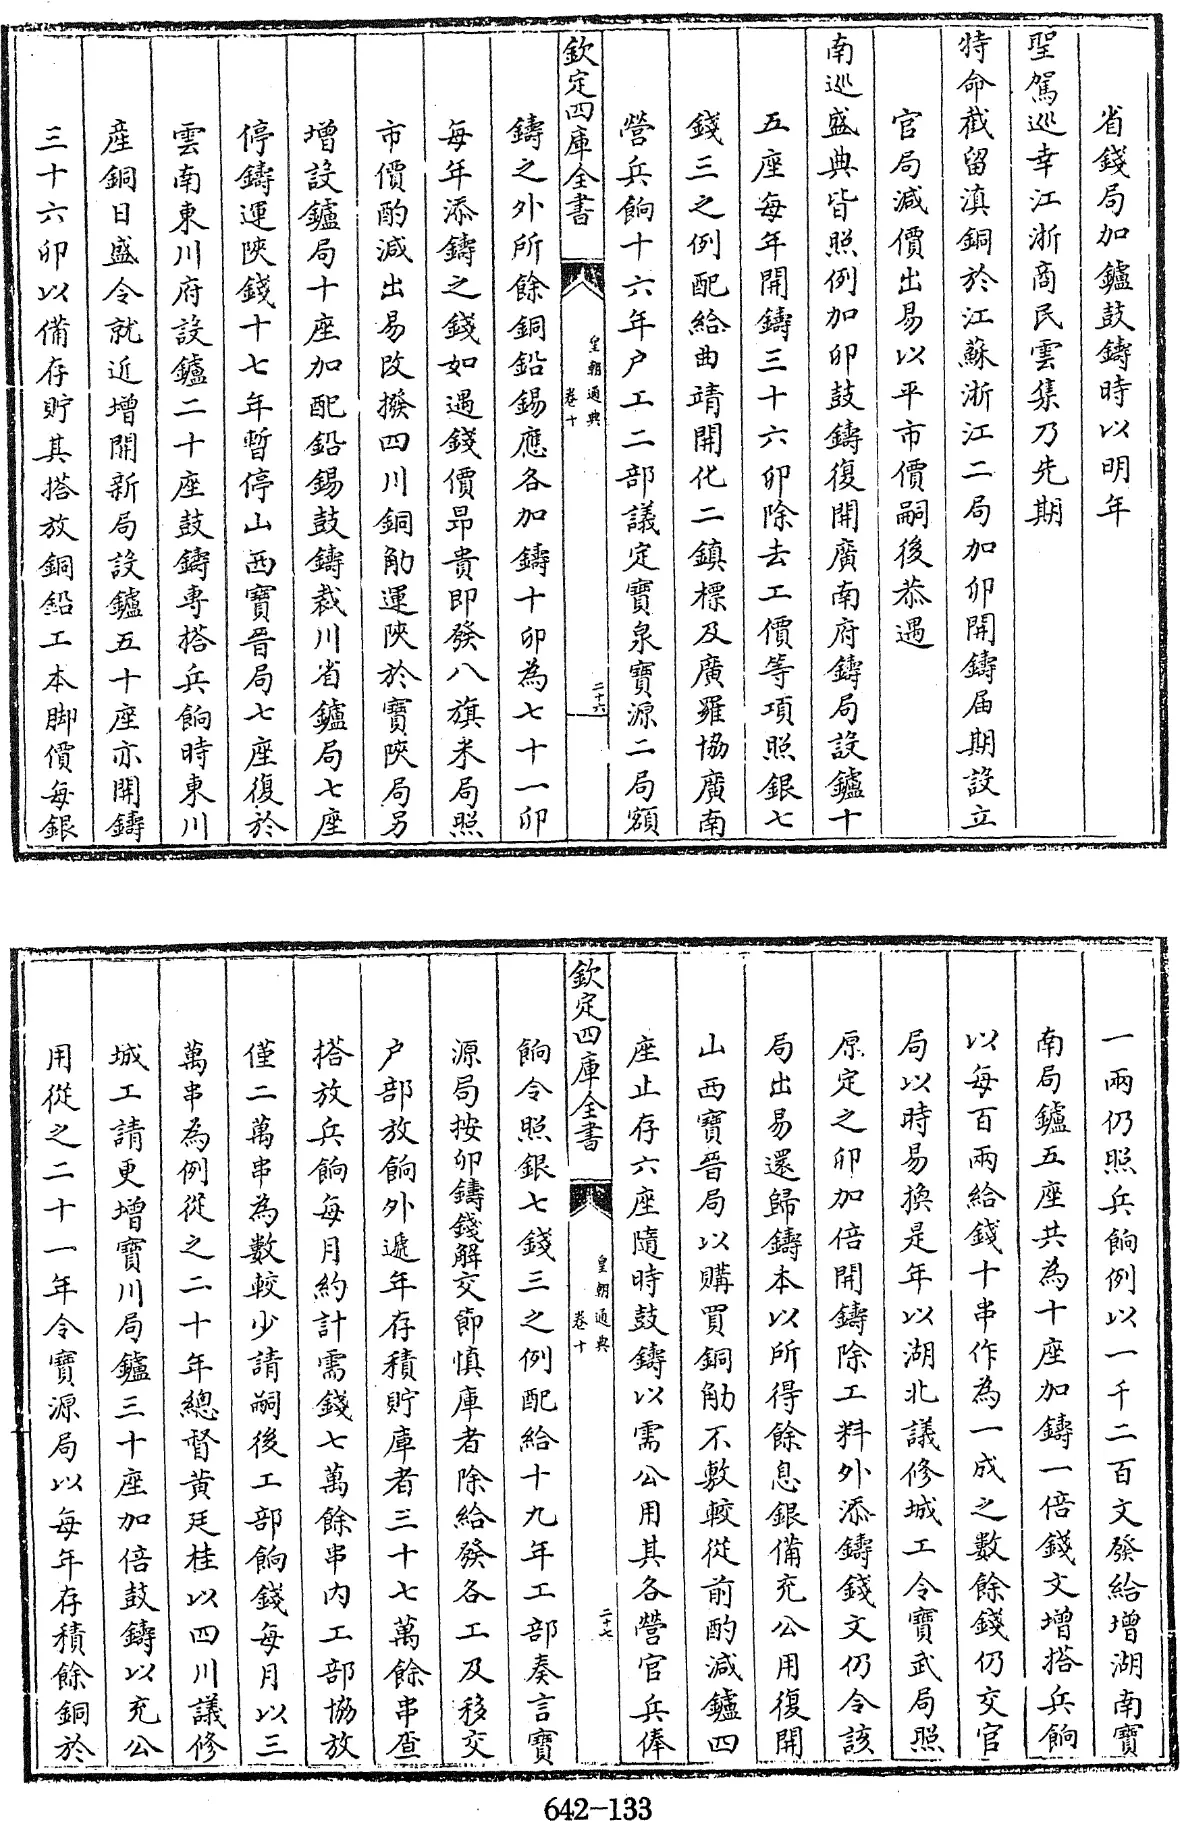 省錢局加鑪鼓鑄時以明年
聖駕巡幸江浙商民雲集乃先期
特命截留滇銅於江蘇浙江二局加卯開鑄届期設立
官局減價出易以平市價嗣後恭遇
南巡盛典皆照例加卯鼓鑄復開廣南府鑄局設鑪十
五座每年開鑄三十六卯除去工價等項照銀七
錢三之例配給曲靖開化二鎮標及廣羅協廣南
營兵餉十六年户工二部議定寶泉寶源二局額
欽定四庫全書
皇朝通典
卷十
二十六
鑄之外所餘銅鉛錫應各加鑄十卯為七十一卯
每年添鑄之錢如遇錢價昂貴即發八旗米局照
市價酌減出易改撥四川銅觔運陝於寶陝局另
增設鑪局十座加配鉛錫鼓鑄裁川省鑪局七座
停鑄運陝錢十七年暫停山西寶晉局七座復於
雲南東川府設鑪二十座鼓鑄專搭兵餉時東川
產銅日盛令就近增開新局設鑪五十座亦開鑄
三十六卯以備存貯其搭放銅鉛工本脚價每銀
一兩仍照兵餉例以一千二百文發給增湖南寶
南局鑪五座共為十座加鑄一倍錢文增搭兵餉
以每百兩給錢十串作為一成之數餘錢仍交官
局以時易換是年以湖北議修城工令寶武局照
原定之卯加倍開鑄除工料外添鑄錢文仍令該
局出易還歸鑄本以所得餘息銀備充公用復開
山西寶晉局以購買銅觔不敷較從前酌減鑪四
座止存六座隨時鼓鑄以需公用其各營官兵俸
欽定四庫全書
皇朝通典
卷十
二十七
餉令照銀七錢三之例配給十九年工部奏言寶
源局按卯鑄錢解交節慎庫者除給發各工及移交
户部放餉外遞年存積貯庫者三十七萬餘串查
搭放兵餉每月約計需錢七萬餘串内工部協放
僅二萬串為數較少請嗣後工部餉錢每月以三
萬串為例從之二十年總督黄廷桂以四川議修
城工請更增寶川局鑪三十座加倍鼓鑄以充公
用從之二十一年令寶源局以每年存積餘銅於
642-133